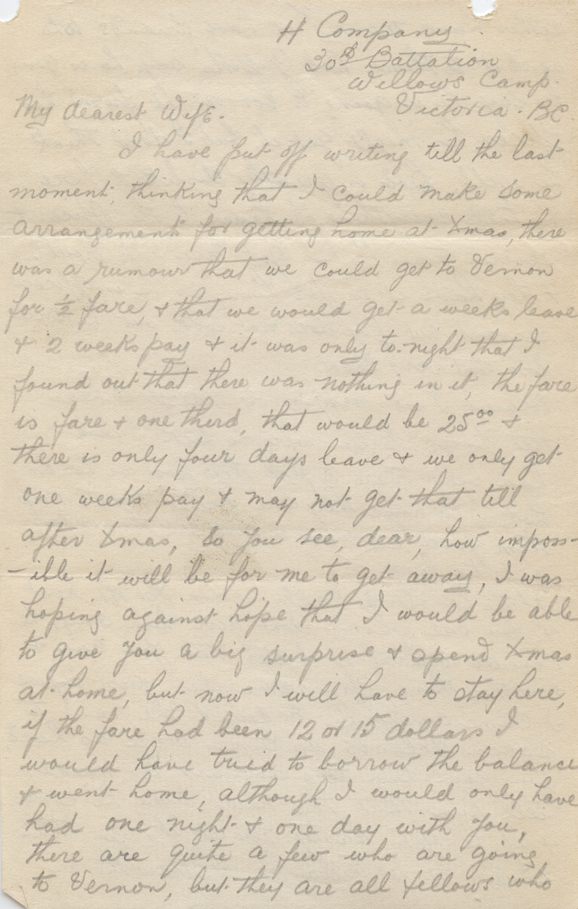 H Company.
30th Battalion
Willows Camp.
Victoria. BC.
My dearest Wife.
I have put off writing till the last
moment, thinking that I could make some
arrangements for getting home at Xmas, there
was a rumour that we could get to Vernon
for ½ fare, & that we would get a weeks leave
& 2 weeks pay & it was only to-night that I
found out that there was nothing in it, the fare
is fare & one third, that would be 25.00 &
there is only four days leave & we only get
one weeks pay & may not get that till
after Xmas, so you see, dear, how imposs-
-ible it will be for me to get away, I was
hoping against hope that I would be able
to give you a big surprise & spend Xmas
at home, but now I will have to stay here,
if the fare had been 12 or 15 dollars I
would have tried to borrow the balance
& went home, although I would only have
had one night & one day with you,
there are quite a few who are going
to Vernon, but they are all fellows who